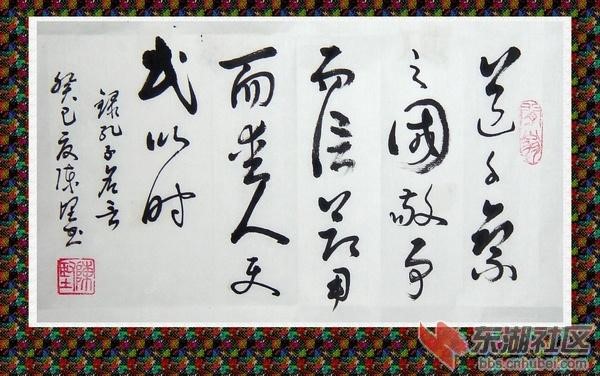 道千乘
之國敬事
而信节用
而爱人使
民以时
録孔子名言
癸巳夏陈书
东湖社区
bbs.cnhubei.com